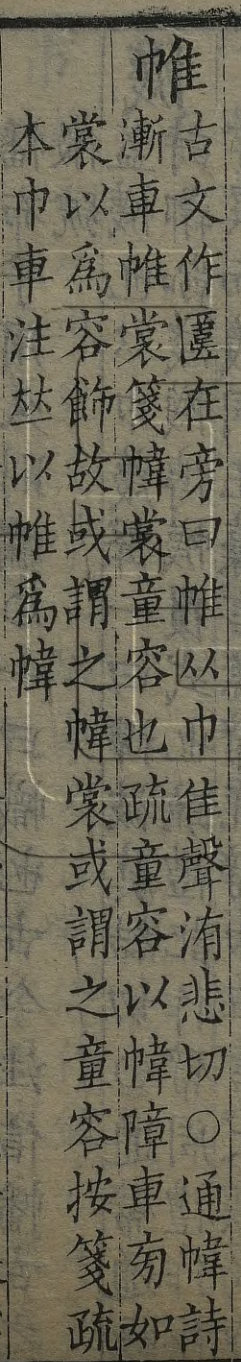 帷
古文作匰在旁曰帷从巾隹聲洧悲切○通幃詩
漸車帷裳箋幃裳童容也疏童容以幃障車旁如
裳以爲容飾故或謂之幃裳或謂之童容按箋疏
本巾車注𠀤以帷爲幃